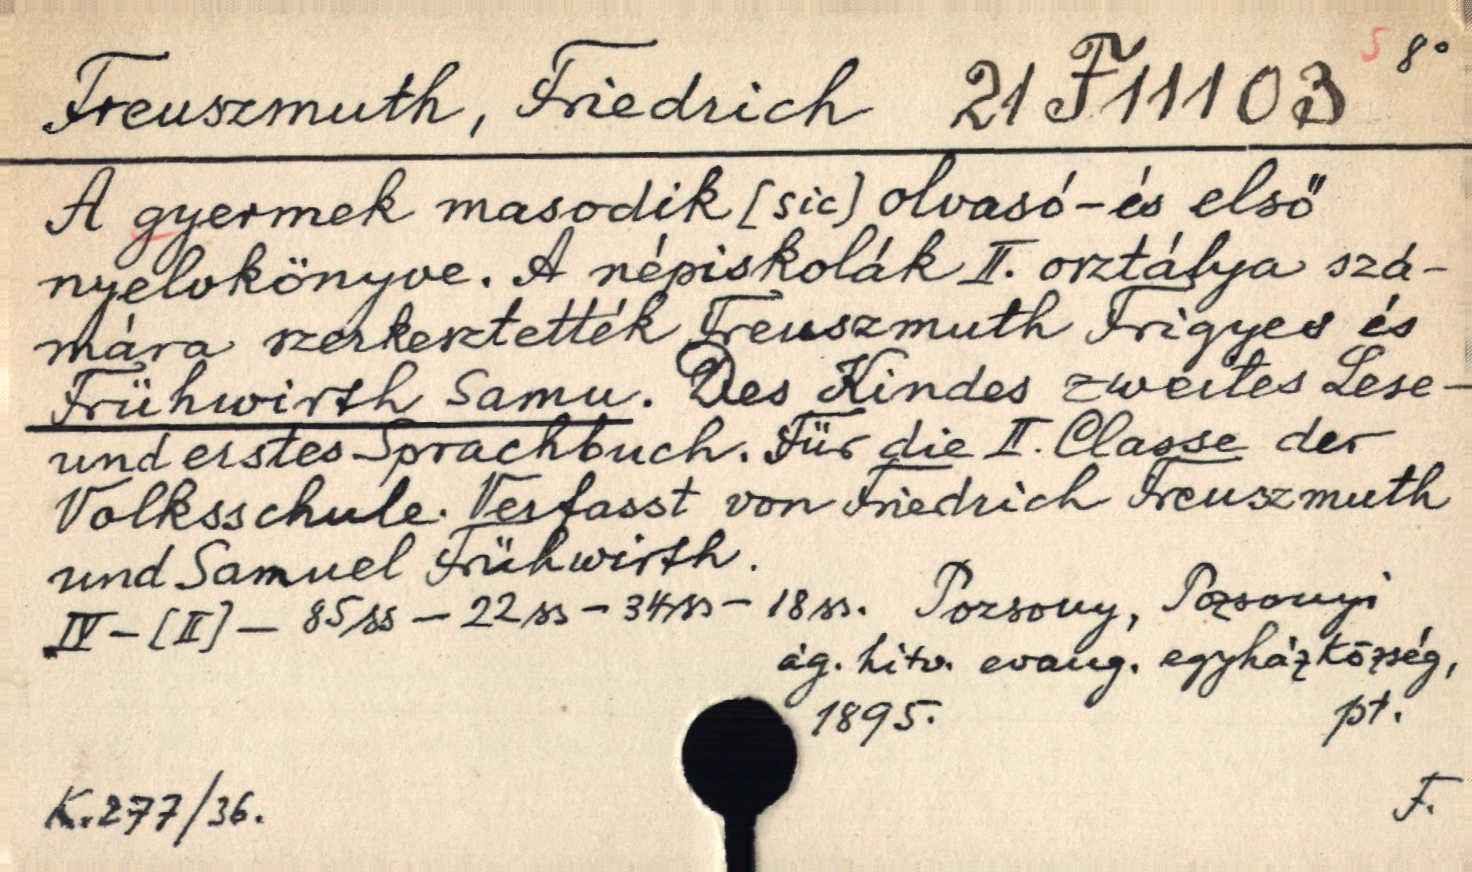 Freuszmuth, Friedrich 21 F 11103 5 8°
A gyermek masodik [sic] olvasó-és első
nyelvkönyve. A népiskolák II. osztálya szá-
mára szerkesztették Freuszmuth Frigyes és
Frühwirth Samu. Des Kindes zweites Lese-
und erstes Sprachbuch. Für die II. Classe der
Volksschule. Verfasst von Friedrich Freuszmuth
und Samuel Frühwirth.
IV-[II] - 85 ss - 22 ss - 34 ss - 18 ss. Pozsony, Pozsonyi
ág. hitv. evang. egyházközség,
1895. pt.
K.277/36. F.